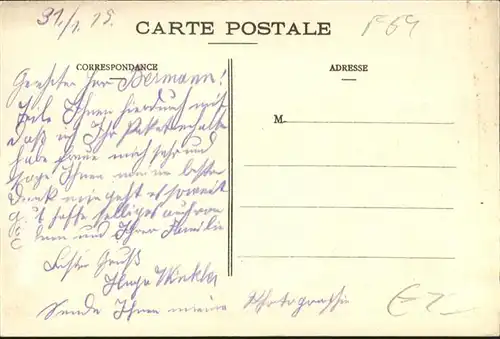 31./1. 15.
CARTE POSTALE
F64
CORRESPONDANCE
ADRESSE
M.
Geehrter Herr Bermann!
Teile Ihnen hierdurch mit
daß ich Ihr Paket erhalten
habe freue mich sehr und
sage Ihnen meinen besten
Dank mir geht es soweit
gut hoffe selbiges auch von
Ihnen und Ihrer Familie
Bester Gruß
Hugo Winkler
Sende Ihnen meine Photographie